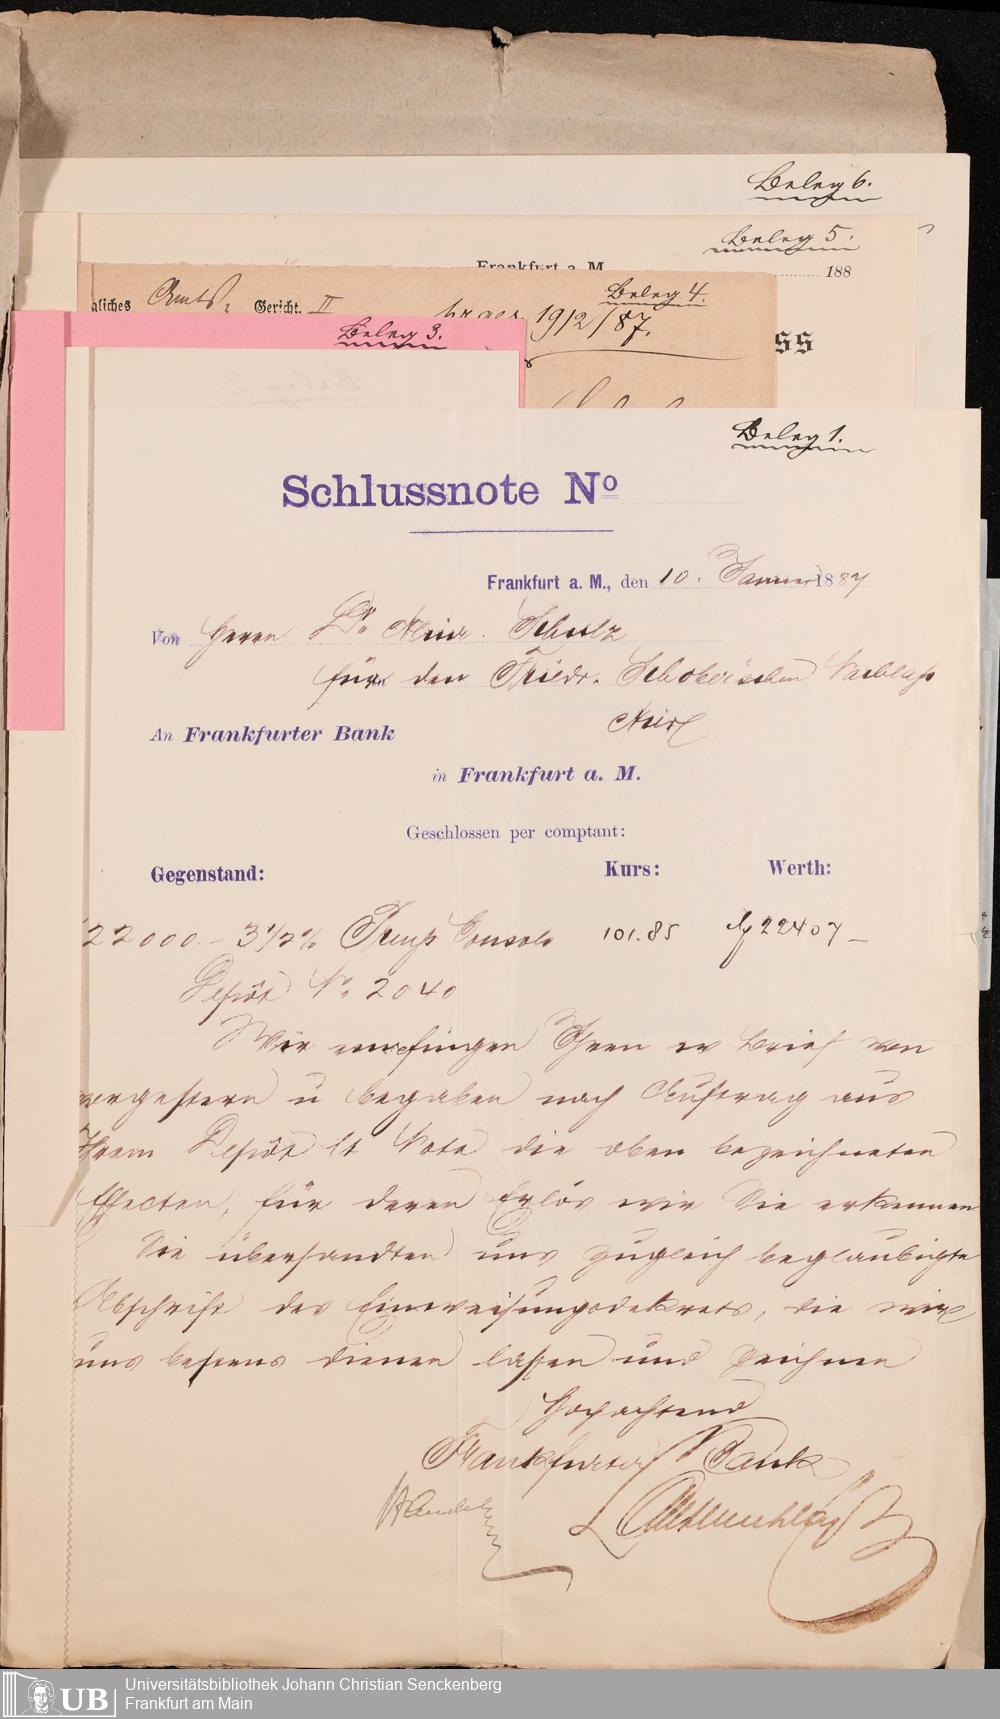 Beleg 6.
Beleg 5.
Frankfurt a. M.
188
Beleg 4.
gliches Amts. Gericht. II
praes. 19/2/87.
ss
Beleg 3.
Beleg 1.
Schlussnote No
Frankfurt a. M., den 10. Januar 1887
Von Herrn Dr. Schulz
für den Friedr. Schober'schen Nachlaß
Hier
An Frankfurter Bank
in Frankfurt a. M.
Geschlossen per comptant:
Gegenstand: Kurs: Werth:
22000.- 3 1/2 % Preuß Consols 101.85 22407 –
Depôt No. 2040
Wir empfingen Ihren Brief von
vorgestern u begaben nach Auftrag aus
Ihrem Depôt lt Nota die oben bezeichneten
Effecten, für deren Erlös wir Sie erkennen
Sie übersandten uns zugleich beglaubigte
Abschrift des Einweisungsdekrets, die wir
uns bestens dienen lassen und zeichnen
Hochachtend
Frankfurter Bank
Universitätsbibliothek Johann Christian Senckenberg
UB Frankfurt am Main